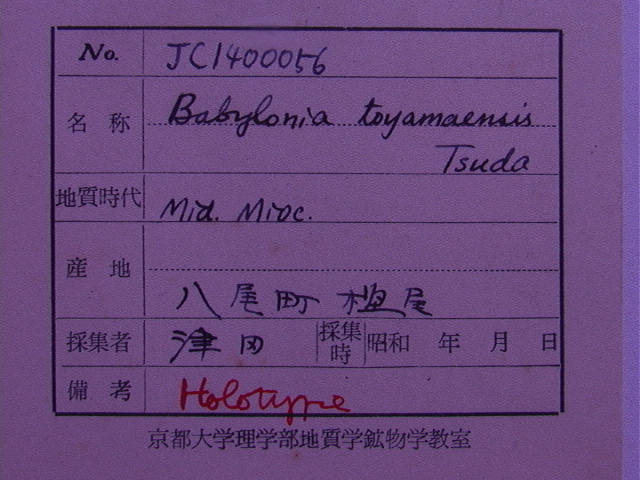 No. JC1400056
名称 Babylonia toyamaensis
Tsuda
地質時代 Mid. Mioc.
産地
八尾町 樫尾
採集者 津田 採集時 昭和 年 月 日
備考 Holotype
京都大学理学部地質学鉱物学教室